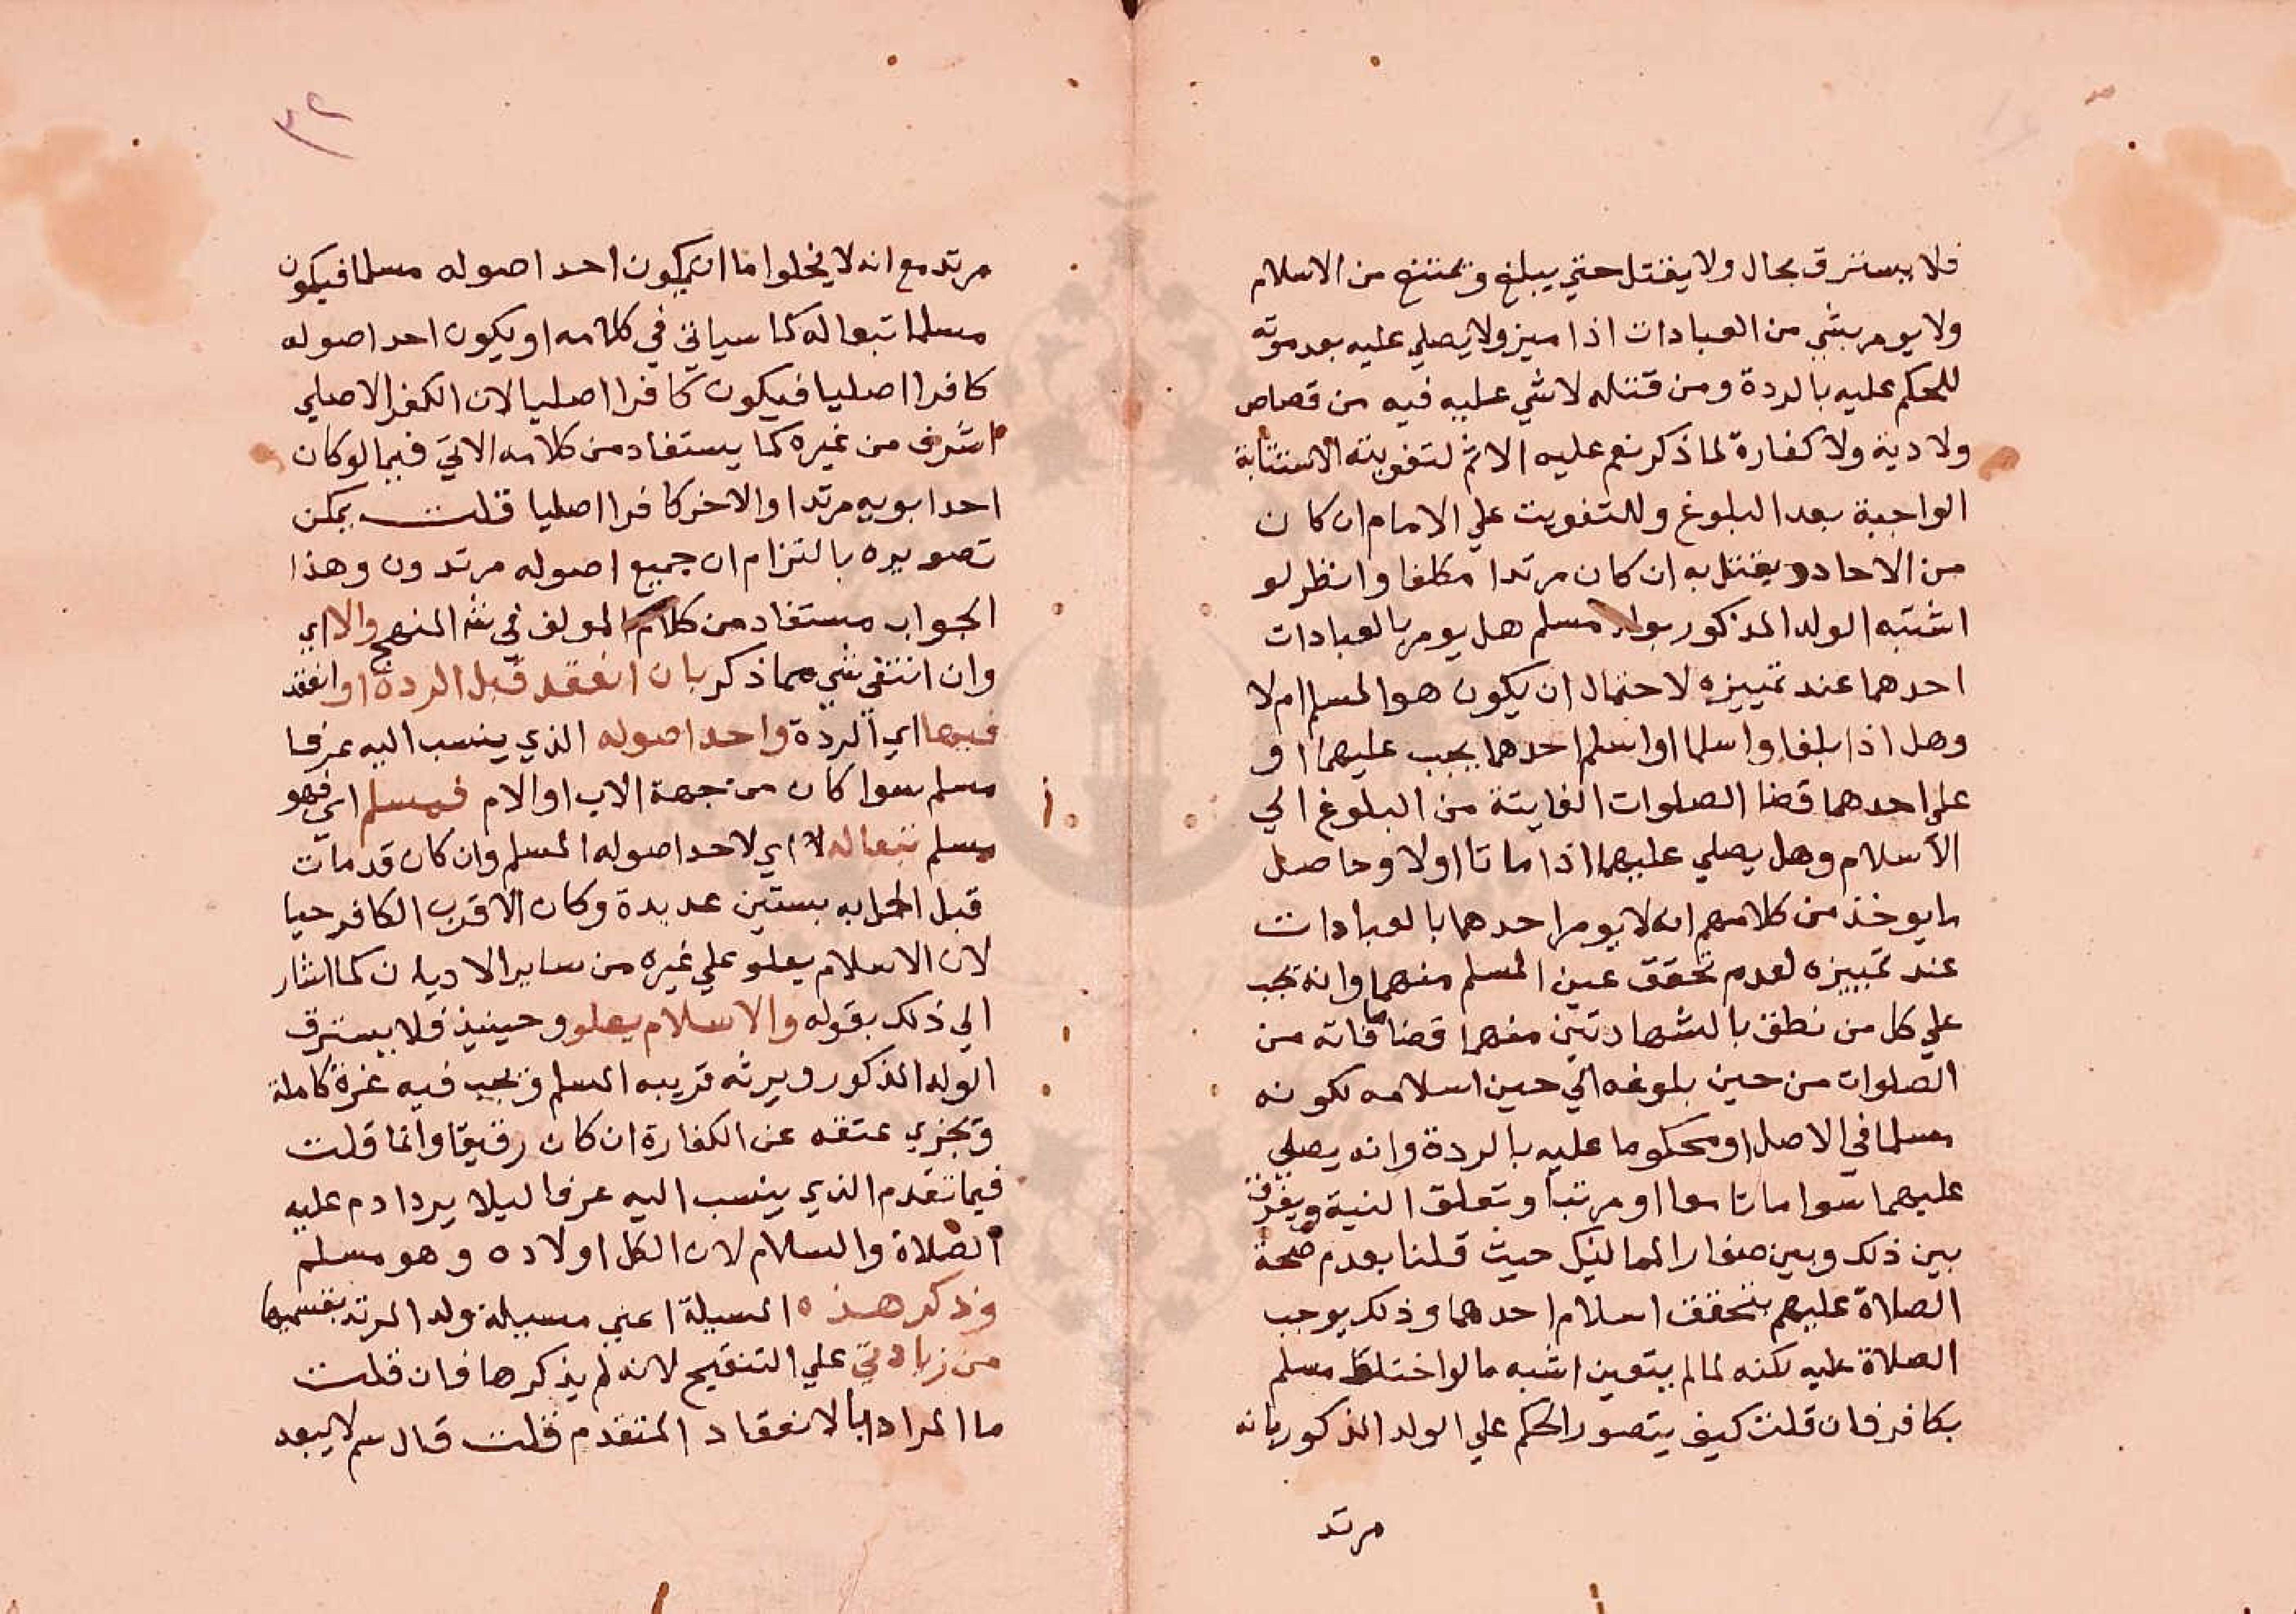 فلا يسترق بحال ولا يقتل حتي يبلغ ويمتنع من الاسلام
ولا يومر بشي من العبادات اذا ميز ولا يصلي عليه بعد موته
للحكم عليه بالردة ومن قتله لا شي عليه فيه من قصاص
ولا دية ولا كفارة لما ذكر نعم عليه الاثم لتفويته الاستتابة
الواجبة بعد البلوغ وللتفويت علي الامام ان كان
من الاحاد ويقتل به ان كان مرتدا مكلفا وانظر لو
اشتبه الولد المذكور بولد مسلم هل يومر بالعبادات
احدهما عند تمييزه لاحتمال ان يكون هو المسلم ام لا
وهل اذا بلغا واسلما او اسلم احدهما يجب عليهما او
علي احدهما قضا الصلوات الفايتة من البلوغ الي
الاسلام وهل يصلي عليهما اذا ماتا اولا وحاصل
ما يوخذ من كلامهم انه لا يومر احدهما بالعبادات
عند تمييزه لعدم تحقق عين المسلم منهما وانه يجب
علي كل من نطق بالشهادتين منهما قضا ما فاته من
الصلوات من حين بلوغه الي حين اسلامه لكونه
مسلما في الاصل او محكوما عليه بالردة وانه يصلي
عليهما سوا ماتا معا او مرتبا وتعلق النية ويفرق
بين ذلك وبين صغار المماليك حيث قلنا بعدم صحة
الصلاة عليهم بتحقق اسلام احدهما وذلك يوجب
الصلاة عليه لكنه لما لم يتعين اشبه ما لو اختلط مسلم
بكافر فان قلت كيف يتصور الحكم علي الولد المذكور بانه
مرتد
٣٢
مرتد مع انه لا يخلوا اما ان يكون احد اصوله مسلما فيكون
مسلما تبعا له كما سياتي في كلامه او يكون احد اصوله
كافرا اصليا فيكون كافرا اصليا لان الكفر الاصلي
اشرف من غيره كما يستفاد من كلامه الاتي فيما لو كان
احد ابويه مرتدا والاخر كافرا اصليا قلت يمكن
تصويره بالتزام ان جميع اصوله مرتدون وهذا
الجواب مستفاد من كلام المولف في شرح المنهج والا اي
وان انتفي شي مما ذكر بان انعقد قبل الردة او انعقد
فيها اي الردة واحد اصوله الذي ينسب اليه عرفا
مسلم سوا كان من جهة الاب او الام فمسلم اي فهو
مسلم تبعا له اي لاحد اصوله المسلم وان كان قد مات
قبل الحمل به بسنين عديدة وكان الاقرب الكافر حيا
لان الاسلام يعلو علي غيره من ساير الاديان كما اشار
الي ذلك بقوله والاسلام يعلو وحينيذ فلا يسترق
الولد المذكور ويرثه قريبه المسلم وتجب فيه غرة كاملة
ويجزي عتقه عن الكفارة ان كان رقيقا وانما قلت
فيما تقدم الذي ينسب اليه عرفا ليلا يرد ادم عليه
الصلاة والسلام لان الكل اولاده وهو مسلم
وذكر هذه المسيلة اعني مسيلة ولد المرتد بقسميها
من زيادتي علي التنقيح لانه لم يذكرها فان قلت
ما المراد بالانعقاد المتقدم قلت قال سم لا يبعد